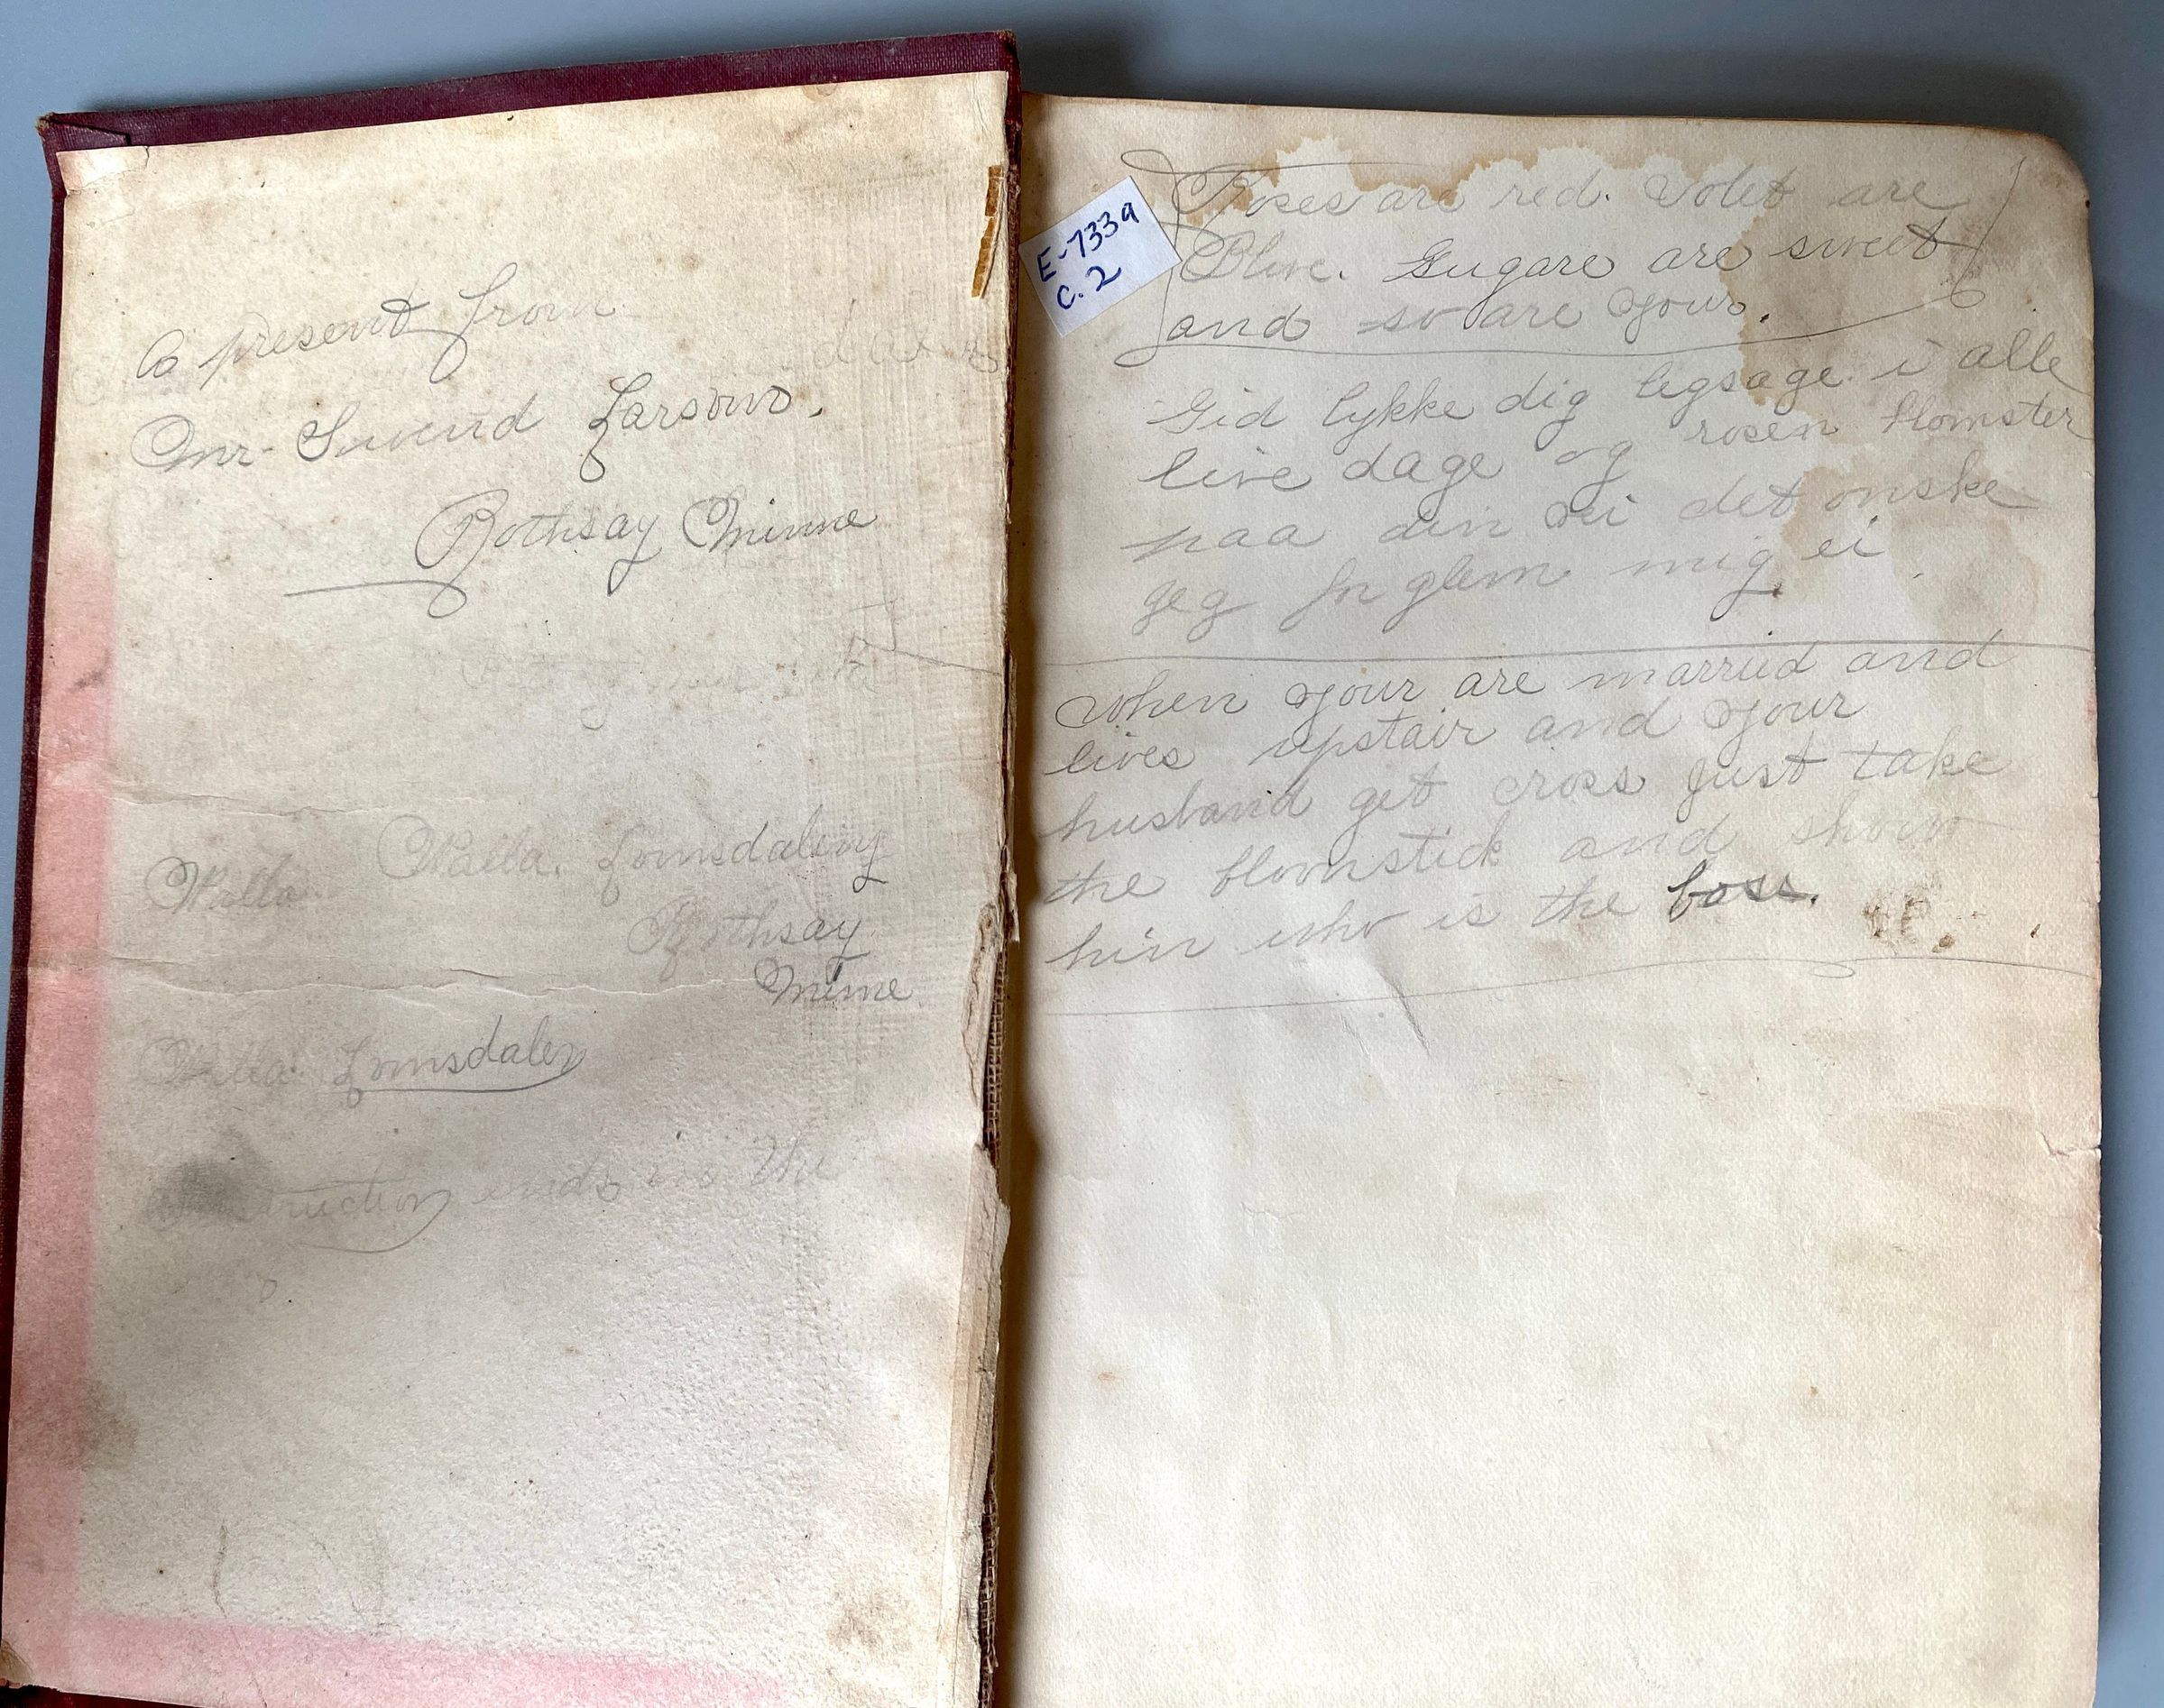 A present from
Mr. Svend Larson.
Rothsay Minne
Walla. Lomsdalen
Walla
Rothsay
Minne
Walla. Lomsdalen
ends in the
E-7339
C.2
Roses are red. Volet are
Blue. Sugare are sweet
and so are your.
Gid lykke dig legsage i alle
live dage og rosen blomster
paa din vei det onske
jeg for glem mig ei
When your are married and
lives upstair and your
husband get cross just take
the bloomstick and show
him who is the boss.